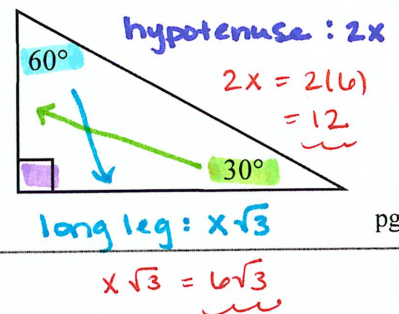 hypotenuse : 2x
60°
2x = 2(6)
= 12
30°
long leg : x√3
pg
x√3 = 6√3